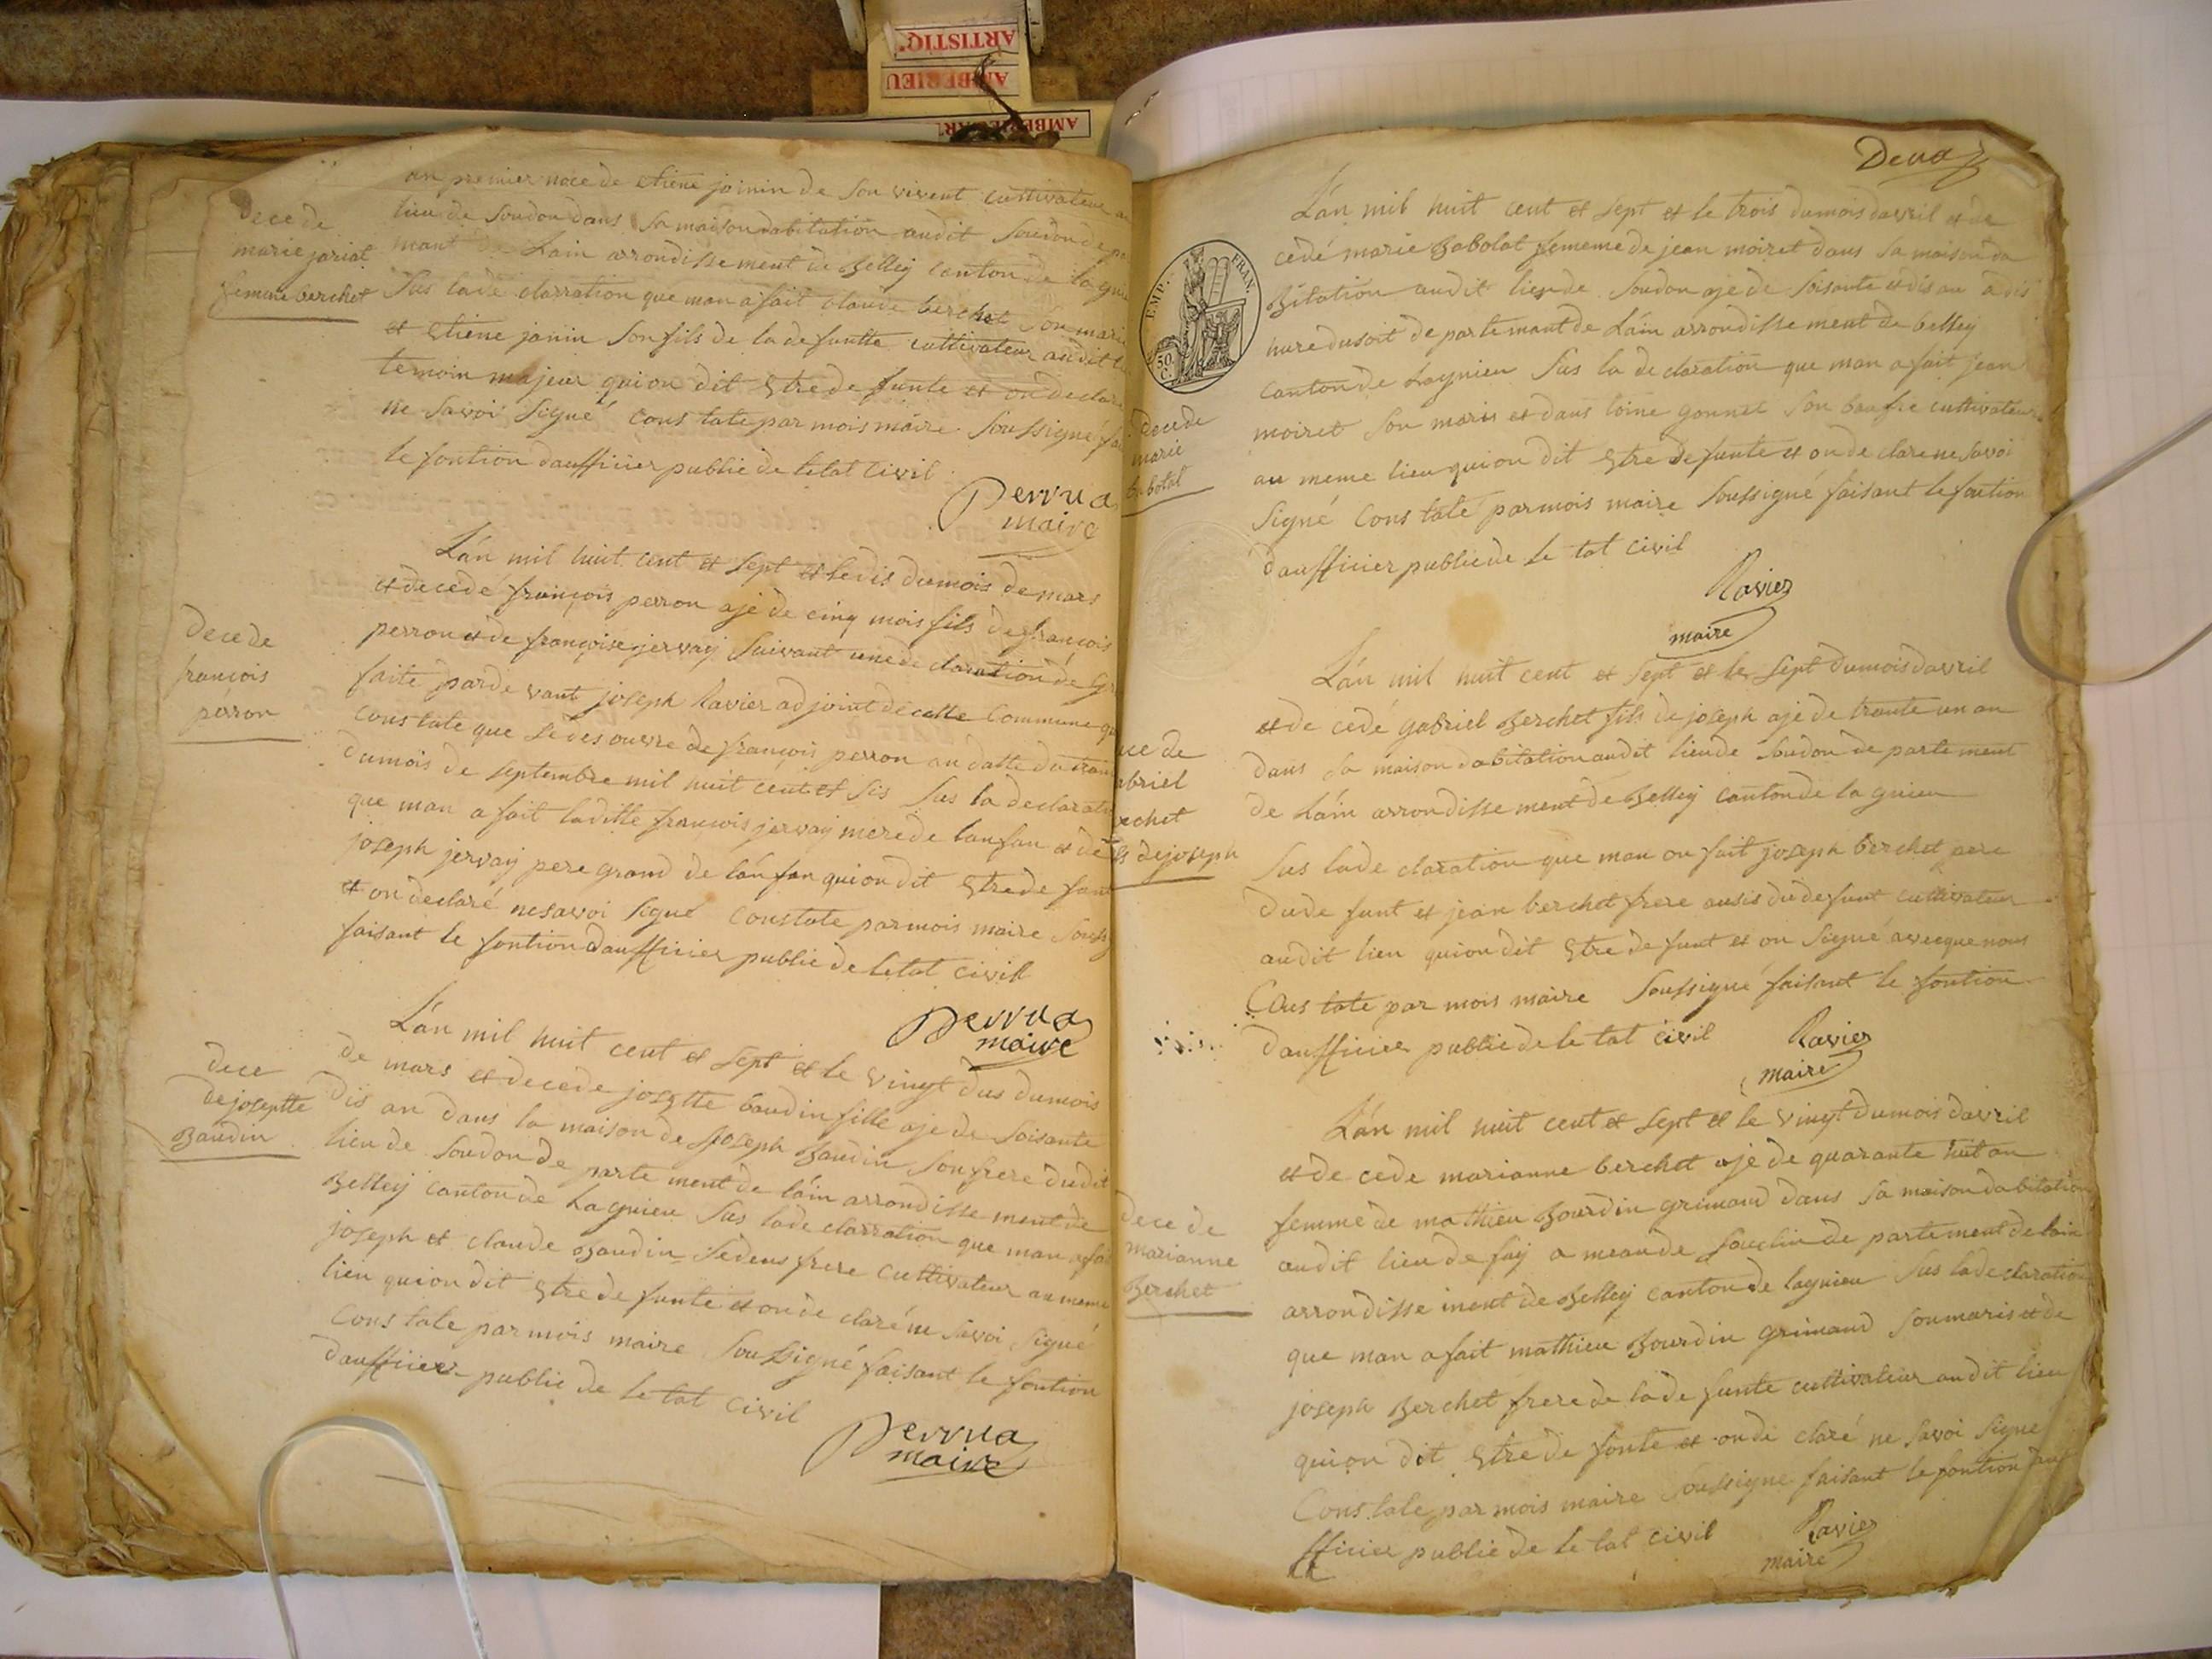 ARTISTIQ
AMBERIEU
AMBERIEU
an premier noce de etiene joinin de son vivent cultivateur
lieu de Soudon dans sa maison dabitation audit Soudon de
mant de Lain arrondissement de Belley canton de lagnie
Sus lade clarration que man a fait claude berchet son marie
et etiene janin son fils de lade funtte cultivateur audit
temoin majeur qui on dit Estre de funte et on declare
ne Savoi Signé Cons tate par mois maire Soussigné
le fontion daufficier public de letat Civil
decede
marie jariat
femme berchet
Perrua
maire
Lán mil huit cent et Sept et le dis dumois de mars
et decedé françois perron ajé de cinq mois fils de francois
perron et de françoise jervaij Suivant une de claration de
faite parde vant joseph Ravier adjoint de cette Commune
Constate que Sedes ouvre de françois perron au datte du
dumois de Septembre mil huit cent et Sis Sus la declarati
que man a fait laditte francois jervaij mere de lanfan et de
joseph jervaij pere grand de lánfan qui on dit Estre de fun
et on declaré ne Savoi Signé Constate par mois maire Souss
faisant le fontion daufficier public de letat Civill
decede
francois
perron
Perrua
maire
Lán mil huit cent et Sept et le vingt dus dumois
de mars et decede josette baudin fille aje de Soisante
dis an dans la maison de joseph Baudin Son frere dudit
lieu de Soudon de parte ment de láin arrondisse ment de
Belleij canton de Lagnieu Sus lade clarration que man a fai
joseph et claude Baudin Sedeus frere Cultivateur au meme
lieu qui on dit Estre de funte et on de claré ne Savoi Signé
Cons tate par mois maire Soussigné faisant le fontion
daufficier public de le tat Civil
dece
de joseptte
Baudin
Perrua
maire
Lán mil huit cent et Sept et le trois dumois davril et de
cedé marie Babolat fememe de jean moiret dans Sa maison da
Bitation audit lieu de Soudon aje de Soisante et dis an a dis
hure du soit de parte mant de Láin arrondisse ment de belleij
Canton de Lagnieu Sus la de claration que man a fait jean
moiret Son maris et dans toine gonnet Son baufre cultivateur
au meme lieu qui on dit Estre de funte et on de clare ne Savoi
Signé Cons tate par mois maire Soussigné faisant le fontion
daufficier public de le tat Civil
EMP. FRAN.
50 C.
decede
marie
babolat
Ravier
maire
Lán mil huit cent et Sept et le Sept dumois davril
et de cedé gabriel Berchet fils de joseph aje de trante un an
dans Sa maison dabitation audit lieu de Soudon de parte ment
de Láin arrondisse ment de Belleij canton de lagnieu
Sus lade claration que man on fait joseph berchet pere
dude funt et jean berchet frere ausis dudefunt cultivateur
audit lieu qui on dit Estre de funt et on Signé avecque nous
Cons tate par mois maire Soussigné faisant le fontion
daufficier public de le tat civil
ece de
abriel
erchet
ls de joseph
Ravier
maire
Lán mil huit cent et Sept et le vingt dumois davril
et de cede marianne berchet aje de quarante huit an
femme de mathieu Bourdin grimaud dans Sa maison dabitation
audit lieu de faij a meau de Souclin de partement de lain
arrondisse ment de Belleij canton de lagnieu Sus lade claration
que man a fait mathieu Bourdin grimaud Son maris et de
joseph Berchet frere de lade funte cultivateur audit lieu
qui on dit Estre de funte et on de claré ne Savoi Signe
Cons tate par mois maire Soussigne faisant le fontion dau
fficier public de le tat civil
decede
marianne
Berchet
Ravier
maire